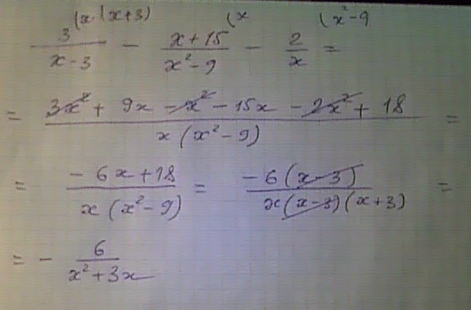 (x·(x+3) (x (x²-9
3/(x-3) - (x+15)/(x²-9) - 2/x =
= (3x² + 9x - x² - 15x - 2x² + 18)/(x(x²-9)) =
= (-6x+18)/(x(x²-9)) = (-6(x-3))/(x(x-3)(x+3)) =
= - 6/(x²+3x)